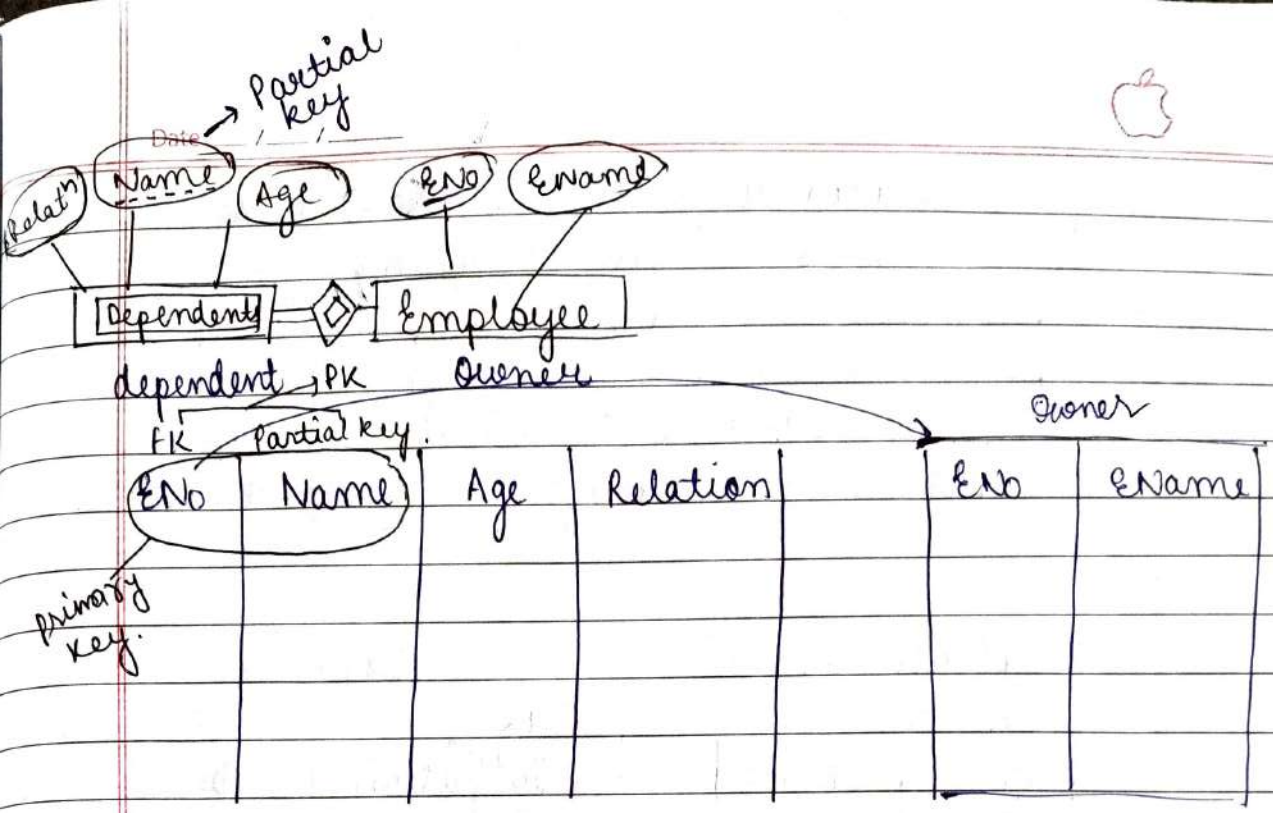 Partial
key
Date / /
Relatⁿ Name Age ENo EName
Dependents Employee
dependent PK Owner
Owner
FK Partial key.
ENo Name Age Relation ENo EName
primary
key.